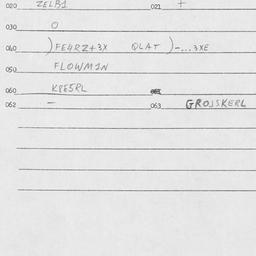 020 ZELB1 021 +
030 O
040 )FE4RZ+3X QLAT )-...3XE
050 FLOWM1N
060 KPE5RL
062 - 063 GROJSKERL